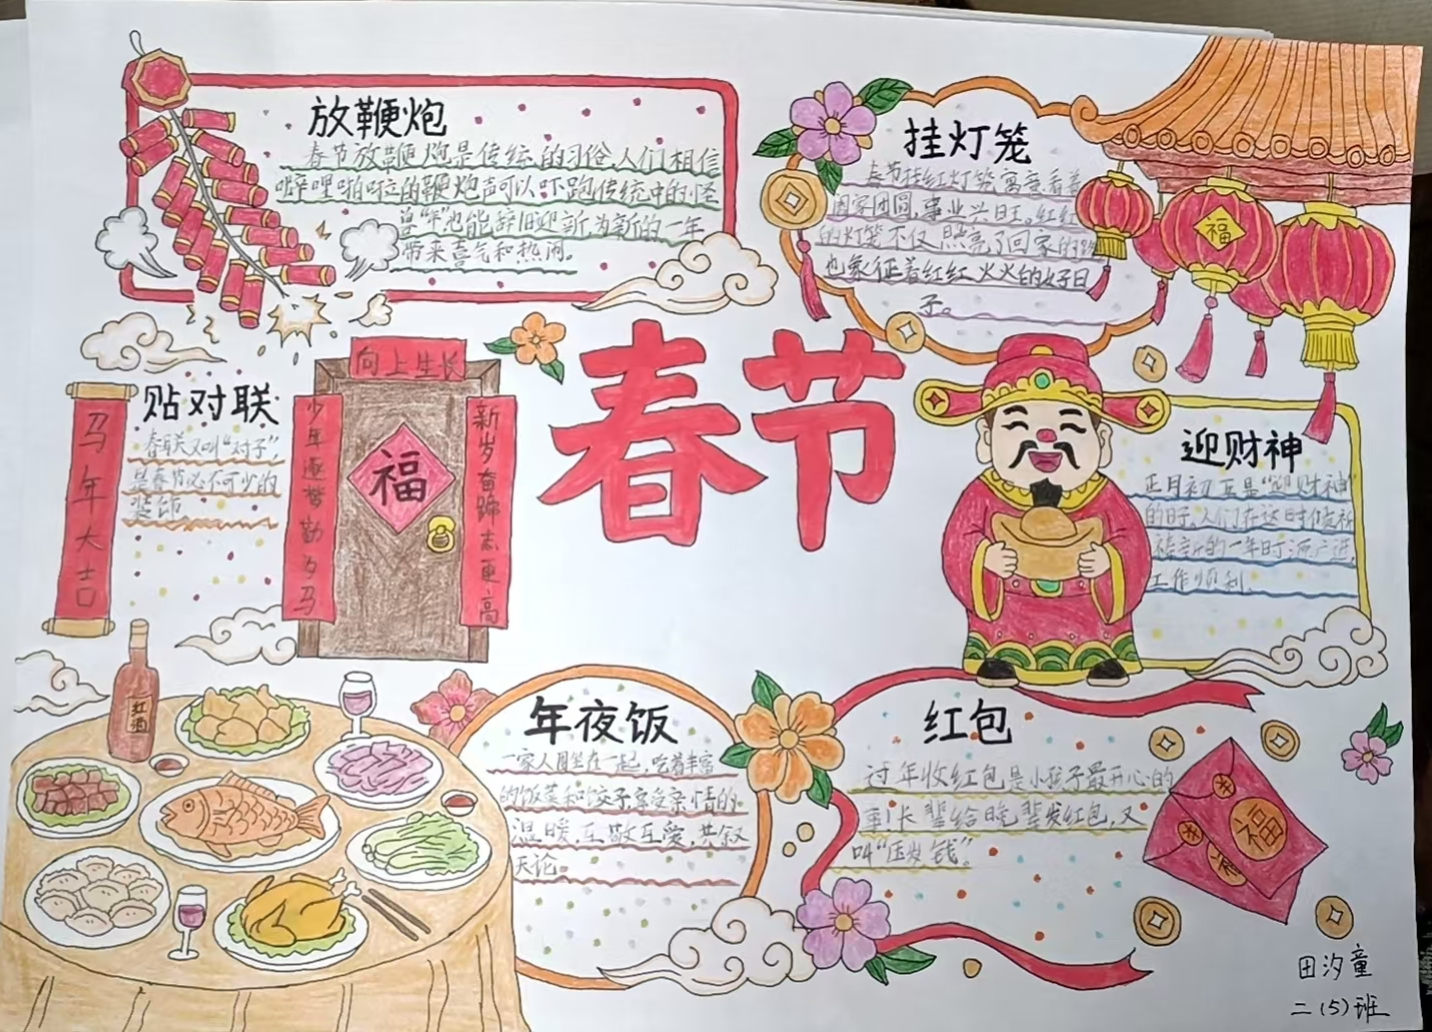 放鞭炮
春节放鞭炮是传统的习俗,人们相信
噼哩啪啦的鞭炮声可以吓跑传统中的怪
兽"年"也能辞旧迎新,为新的一年
带来喜气和热闹。
挂灯笼
春节挂红灯笼,寓意着
国家团圆,事业兴旺。红红
的灯笼不仅照亮了回家的路
也象征着红红火火的好日
子。
福
春节
贴对联
春联又叫"对子",
是春节必不可少的
装饰
马年大吉
向上生长
少年逐梦勤为马
新岁奋蹄志更高
福
迎财神
正月初五是"迎财神"
的日子,人们在这时候祈
祷新的一年财源广进,
工作顺利
红酒
年夜饭
一家人围坐在一起,吃着丰富
的饭菜和饺子享受亲情的
温暖,互敬互爱,共叙
天论。
红包
过年收红包是小孩子最开心的
事!长辈给晚辈发红包,又
叫"压岁钱"。
福
田汐童
二(5)班